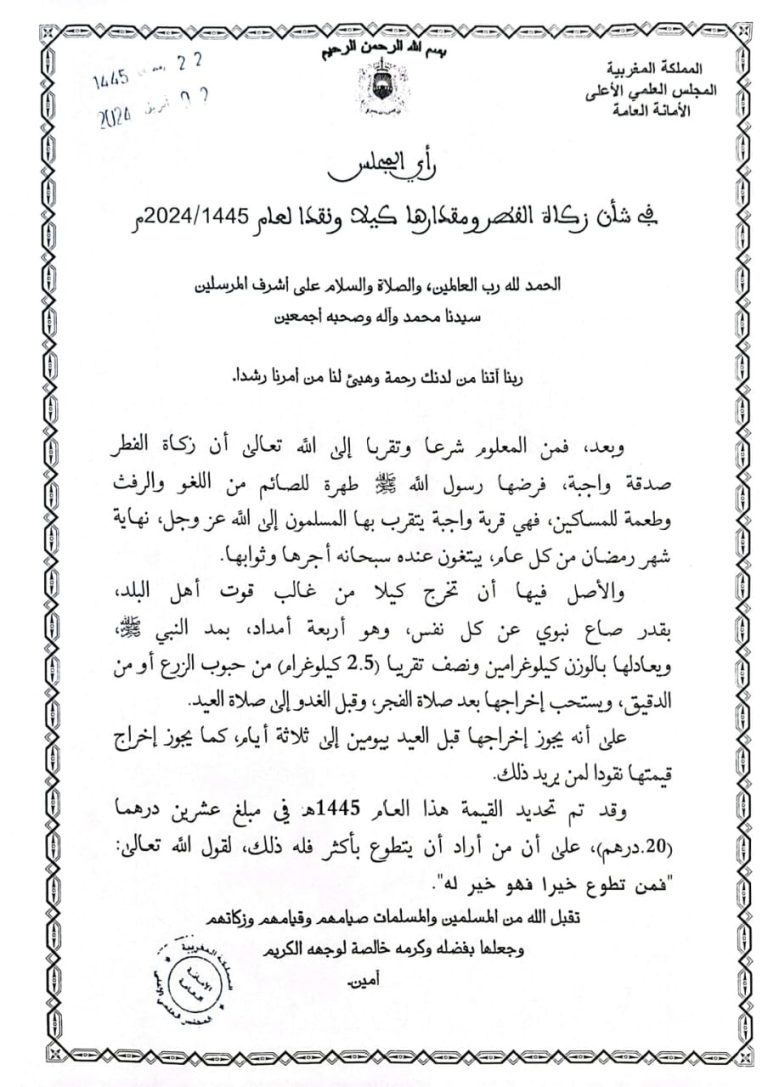 بسم الله الرحمن الرحيم
المملكة المغربية
المجلس العلمي الأعلى
الأمانة العامة
22 1445
2024
رأي المجلس
في شأن زكاة الفطر ومقدارها كيلا ونقدا لعام 2024/1445م
الحمد لله رب العالمين، والصلاة والسلام على أشرف المرسلين
سيدنا محمد وآله وصحبه أجمعين
ربنا آتنا من لدنك رحمة وهيئ لنا من أمرنا رشدا.
وبعد، فمن المعلوم شرعا وتقربا إلى الله تعالى أن زكاة الفطر
صدقة واجبة، فرضها رسول الله ﷺ طهرة للصائم من اللغو والرفث
وطعمة للمساكين، فهي قربة واجبة يتقرب بها المسلمون إلى الله عز وجل، نهاية
شهر رمضان من كل عام، يبتغون عنده سبحانه أجرها وثوابها.
والأصل فيها أن تخرج كيلا من غالب قوت أهل البلد،
بقدر صاع نبوي عن كل نفس، وهو أربعة أمداد، بمد النبي ﷺ،
ويعادلها بالوزن كيلوغرامين ونصف تقريبا (2.5 كيلوغرام) من حبوب الزرع أو من
الدقيق، ويستحب إخراجها بعد صلاة الفجر، وقبل الغدو إلى صلاة العيد.
على أنه يجوز إخراجها قبل العيد بيومين إلى ثلاثة أيام، كما يجوز إخراج
قيمتها نقودا لمن يريد ذلك.
وقد تم تحديد القيمة هذا العام 1445هـ في مبلغ عشرين درهما
(20.درهم)، على أن من أراد أن يتطوع بأكثر فله ذلك، لقول الله تعالى:
"فمن تطوع خيرا فهو خير له".
تقبل الله من المسلمين والمسلمات صيامهم وقيامهم وزكاتهم
وجعلها بفضله وكرمه خالصة لوجهه الكريم
أمين.
المملكة المغربية
الأمانة
العامة
المجلس العلمي الأعلى